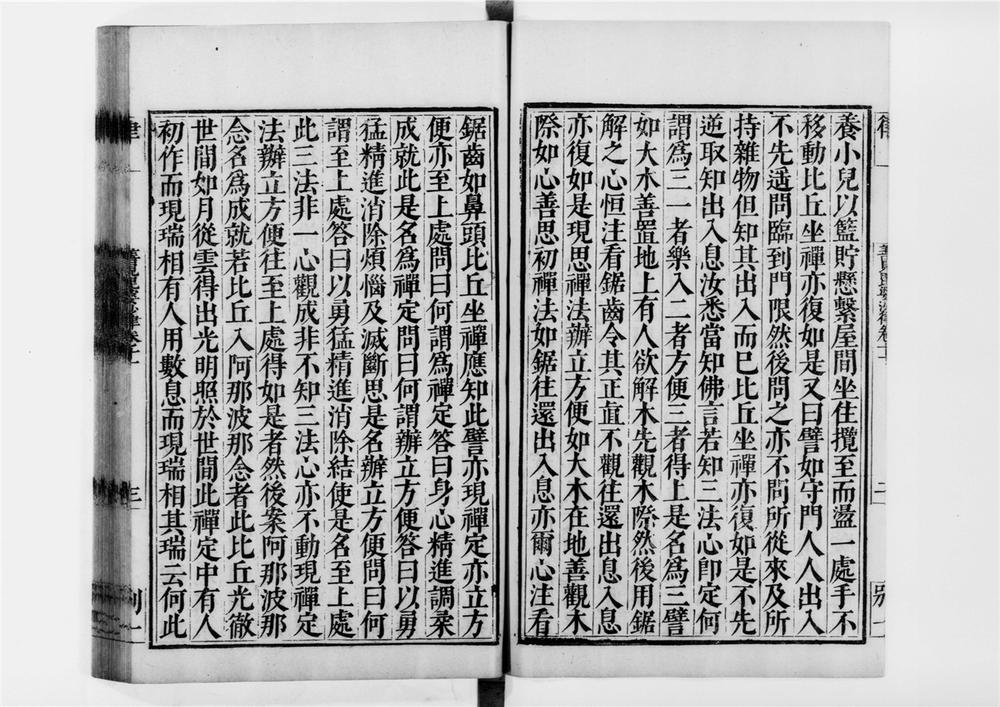 養小兒以籃貯懸繫屋間坐住攬至而盪一處手不
移動比丘坐禪亦復如是又曰譬如守門人人出入
不先遥問臨到門限然後問之亦不問所從來及所
持雜物但知其出入而已比丘坐禪亦復如是不先
逆取知出入息汝悉當知佛言若知三法心卽定何
謂爲三一者樂入二者方便三者得上是名爲三譬
如大木善置地上有人欲解木先觀木際然後用鋸
解之心恒注看鋸齒令其正直不觀往還出息入息
亦復如是現思禪法辦立方便如大木在地善觀木
際如心善思初禪法如鋸往還出入息亦爾心注看
鋸齒如鼻頭比丘坐禪應知此譬亦現禪定亦立方
便亦至上處問曰何謂爲禪定答曰身心精進調柔
成就此是名爲禪定問曰何謂辦立方便答曰以勇
猛精進消除煩惱及滅斷思是名辦立方便問曰何
謂至上處答曰以勇猛精進消除結使是名至上處
此三法非一心觀成非不知三法心亦不動現禪定
法辦立方便往至上處得如是者然後案阿那波那
念名爲成就若比丘入阿那波那念者此比丘光徹
世間如月從雲得出光明照於世間此禪定中有人
初作而現瑞相有人用數息而現瑞相其瑞云何此